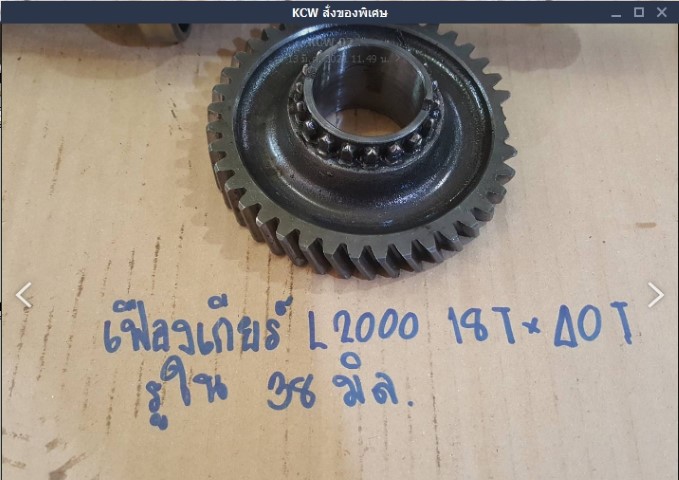 KCW สั่งของพิเศษ
KCW 02
11.49 น.
เฟืองเกียร์ L2000 18T x 40T
รูใน 38 มิล.